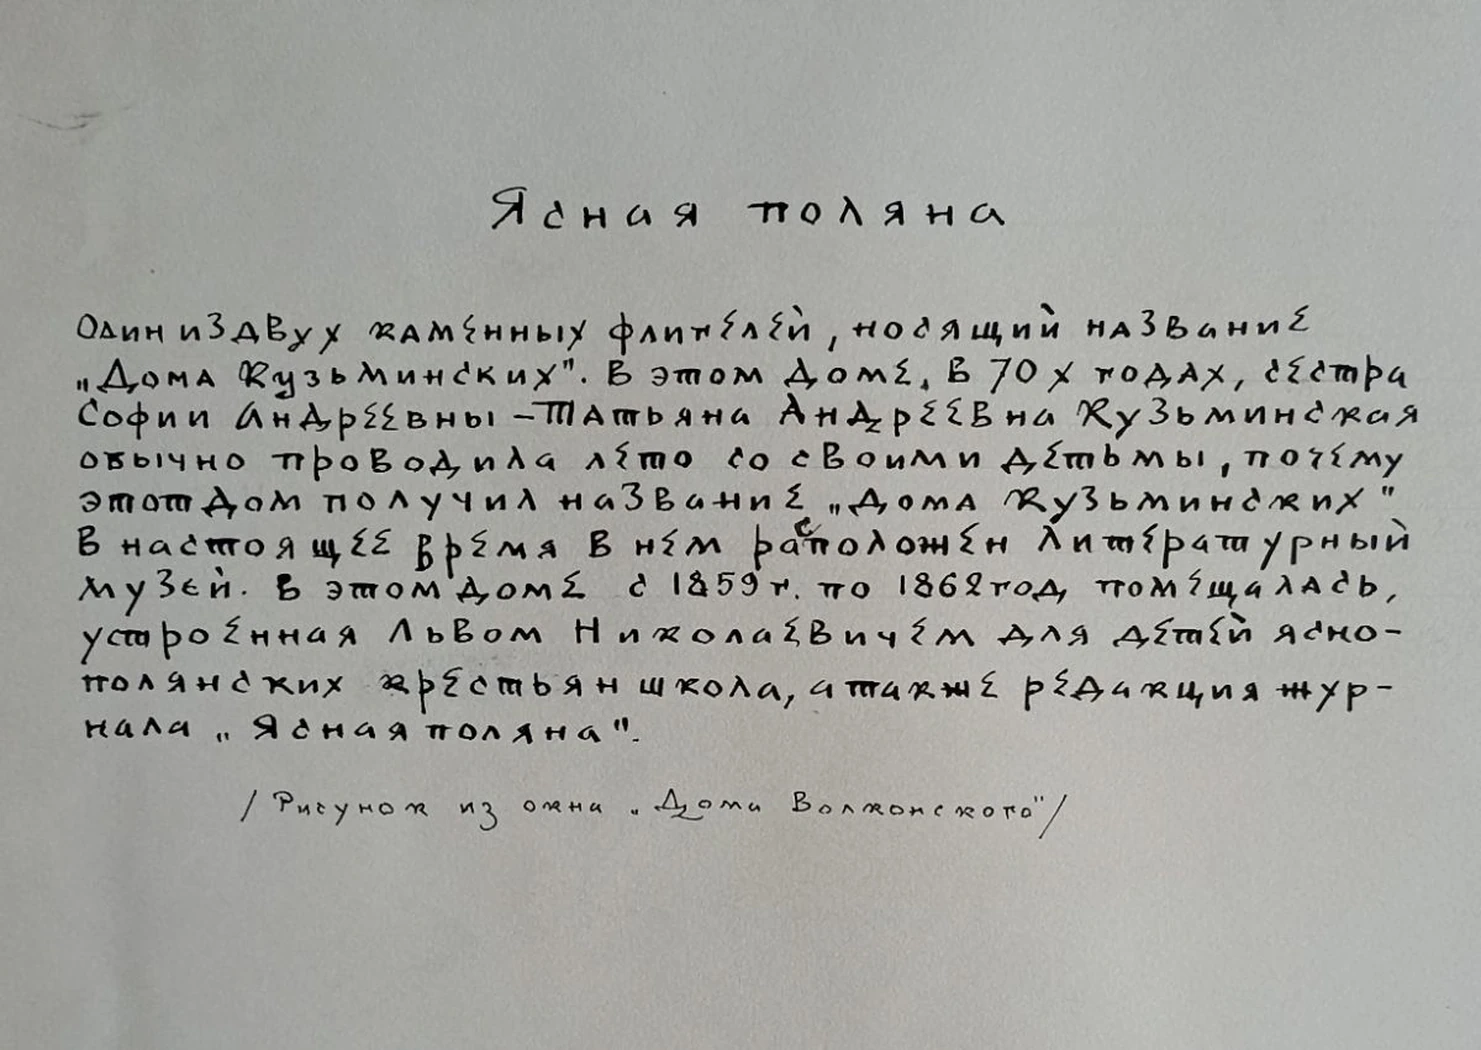 Ясная поляна
Один из двух каменных флигелей, носящий название
„Дома Кузьминских". В этом доме, в 70х годах, сестра
Софии Андреевны – Татьяна Андреевна Кузьминская
обычно проводила лето со своими детьмы, почему
этот дом получил название „Дома Кузьминских"
В настоящее время в нем расположен литературный
музей. В этом доме с 1859г. по 1862год, помещалась,
устроенная Львом Николаевичем для детей ясно-
полянских крестьян школа, а также редакция жур-
нала „Ясная поляна".
/Рисунок из окна „Дома Волконского"/